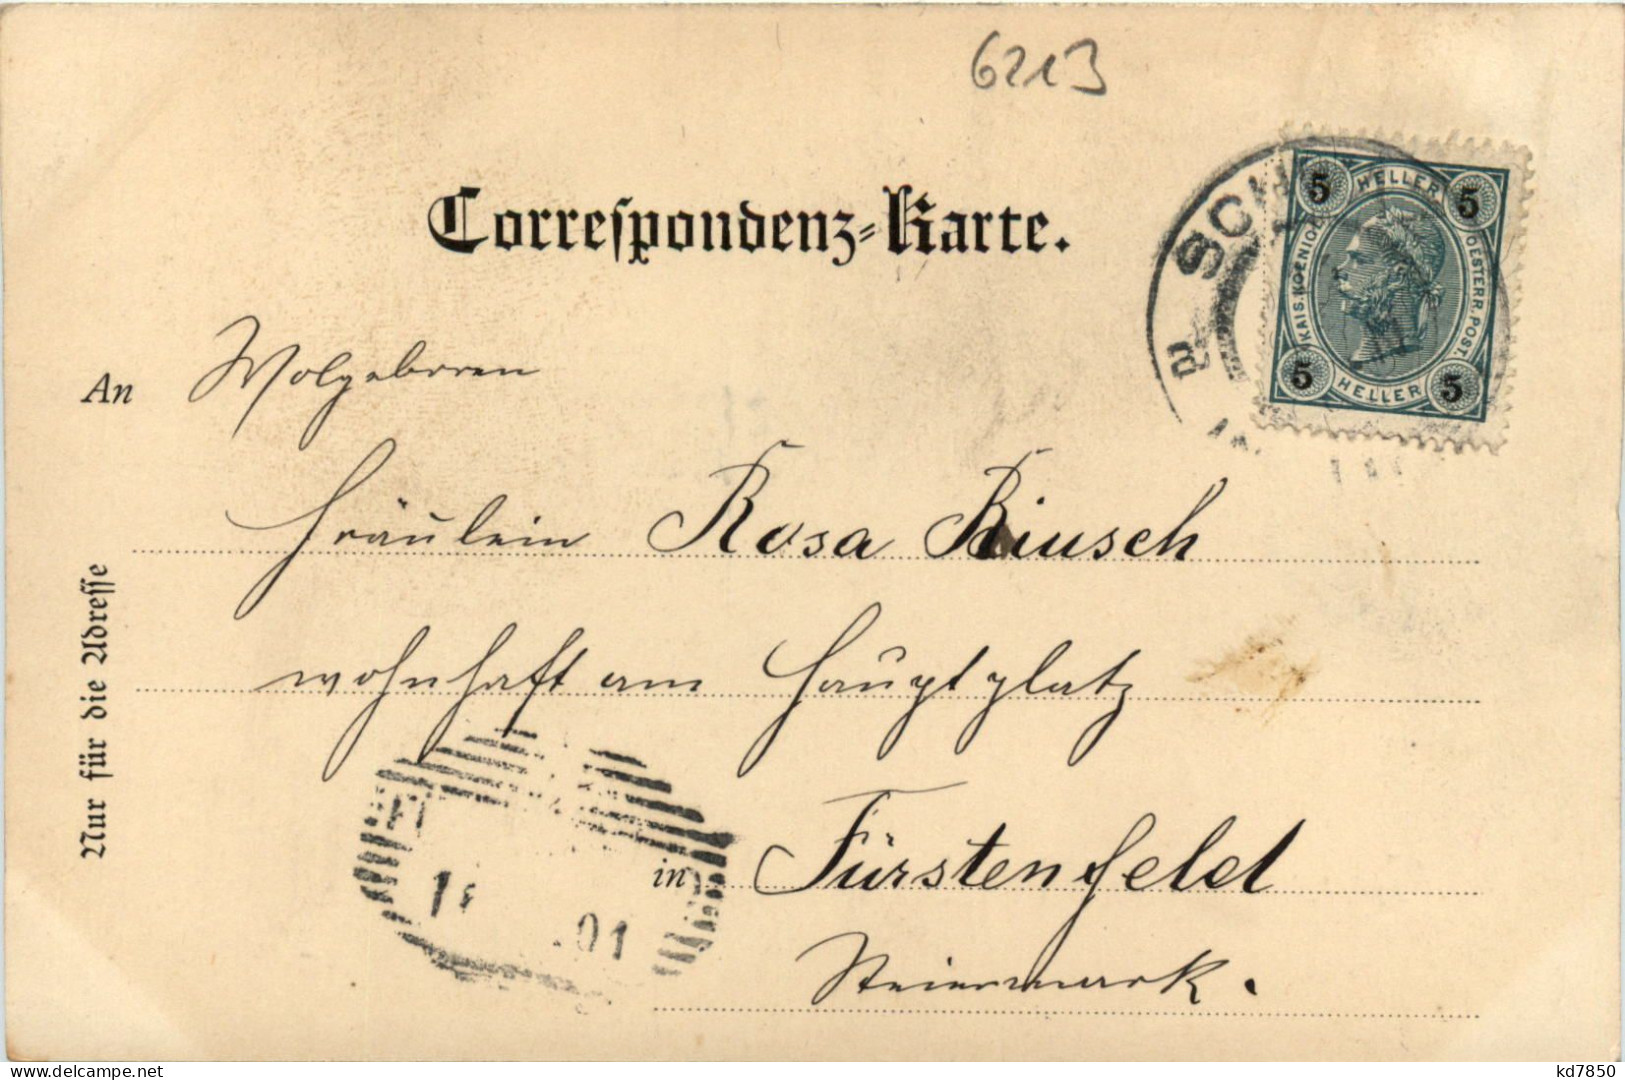 6213
Correspondenz-Karte.
SCH
5 HELLER 5
KAIS. KOENIGL. OESTERR. POST.
5 HELLER 5
An Wolgeboren
Fräulein Rosa Riusch
wohnhaft am Hauptplatz
in Fürstenfeld
Steiermark.
Nur für die Adresse
01
delcampe.net
kd7850